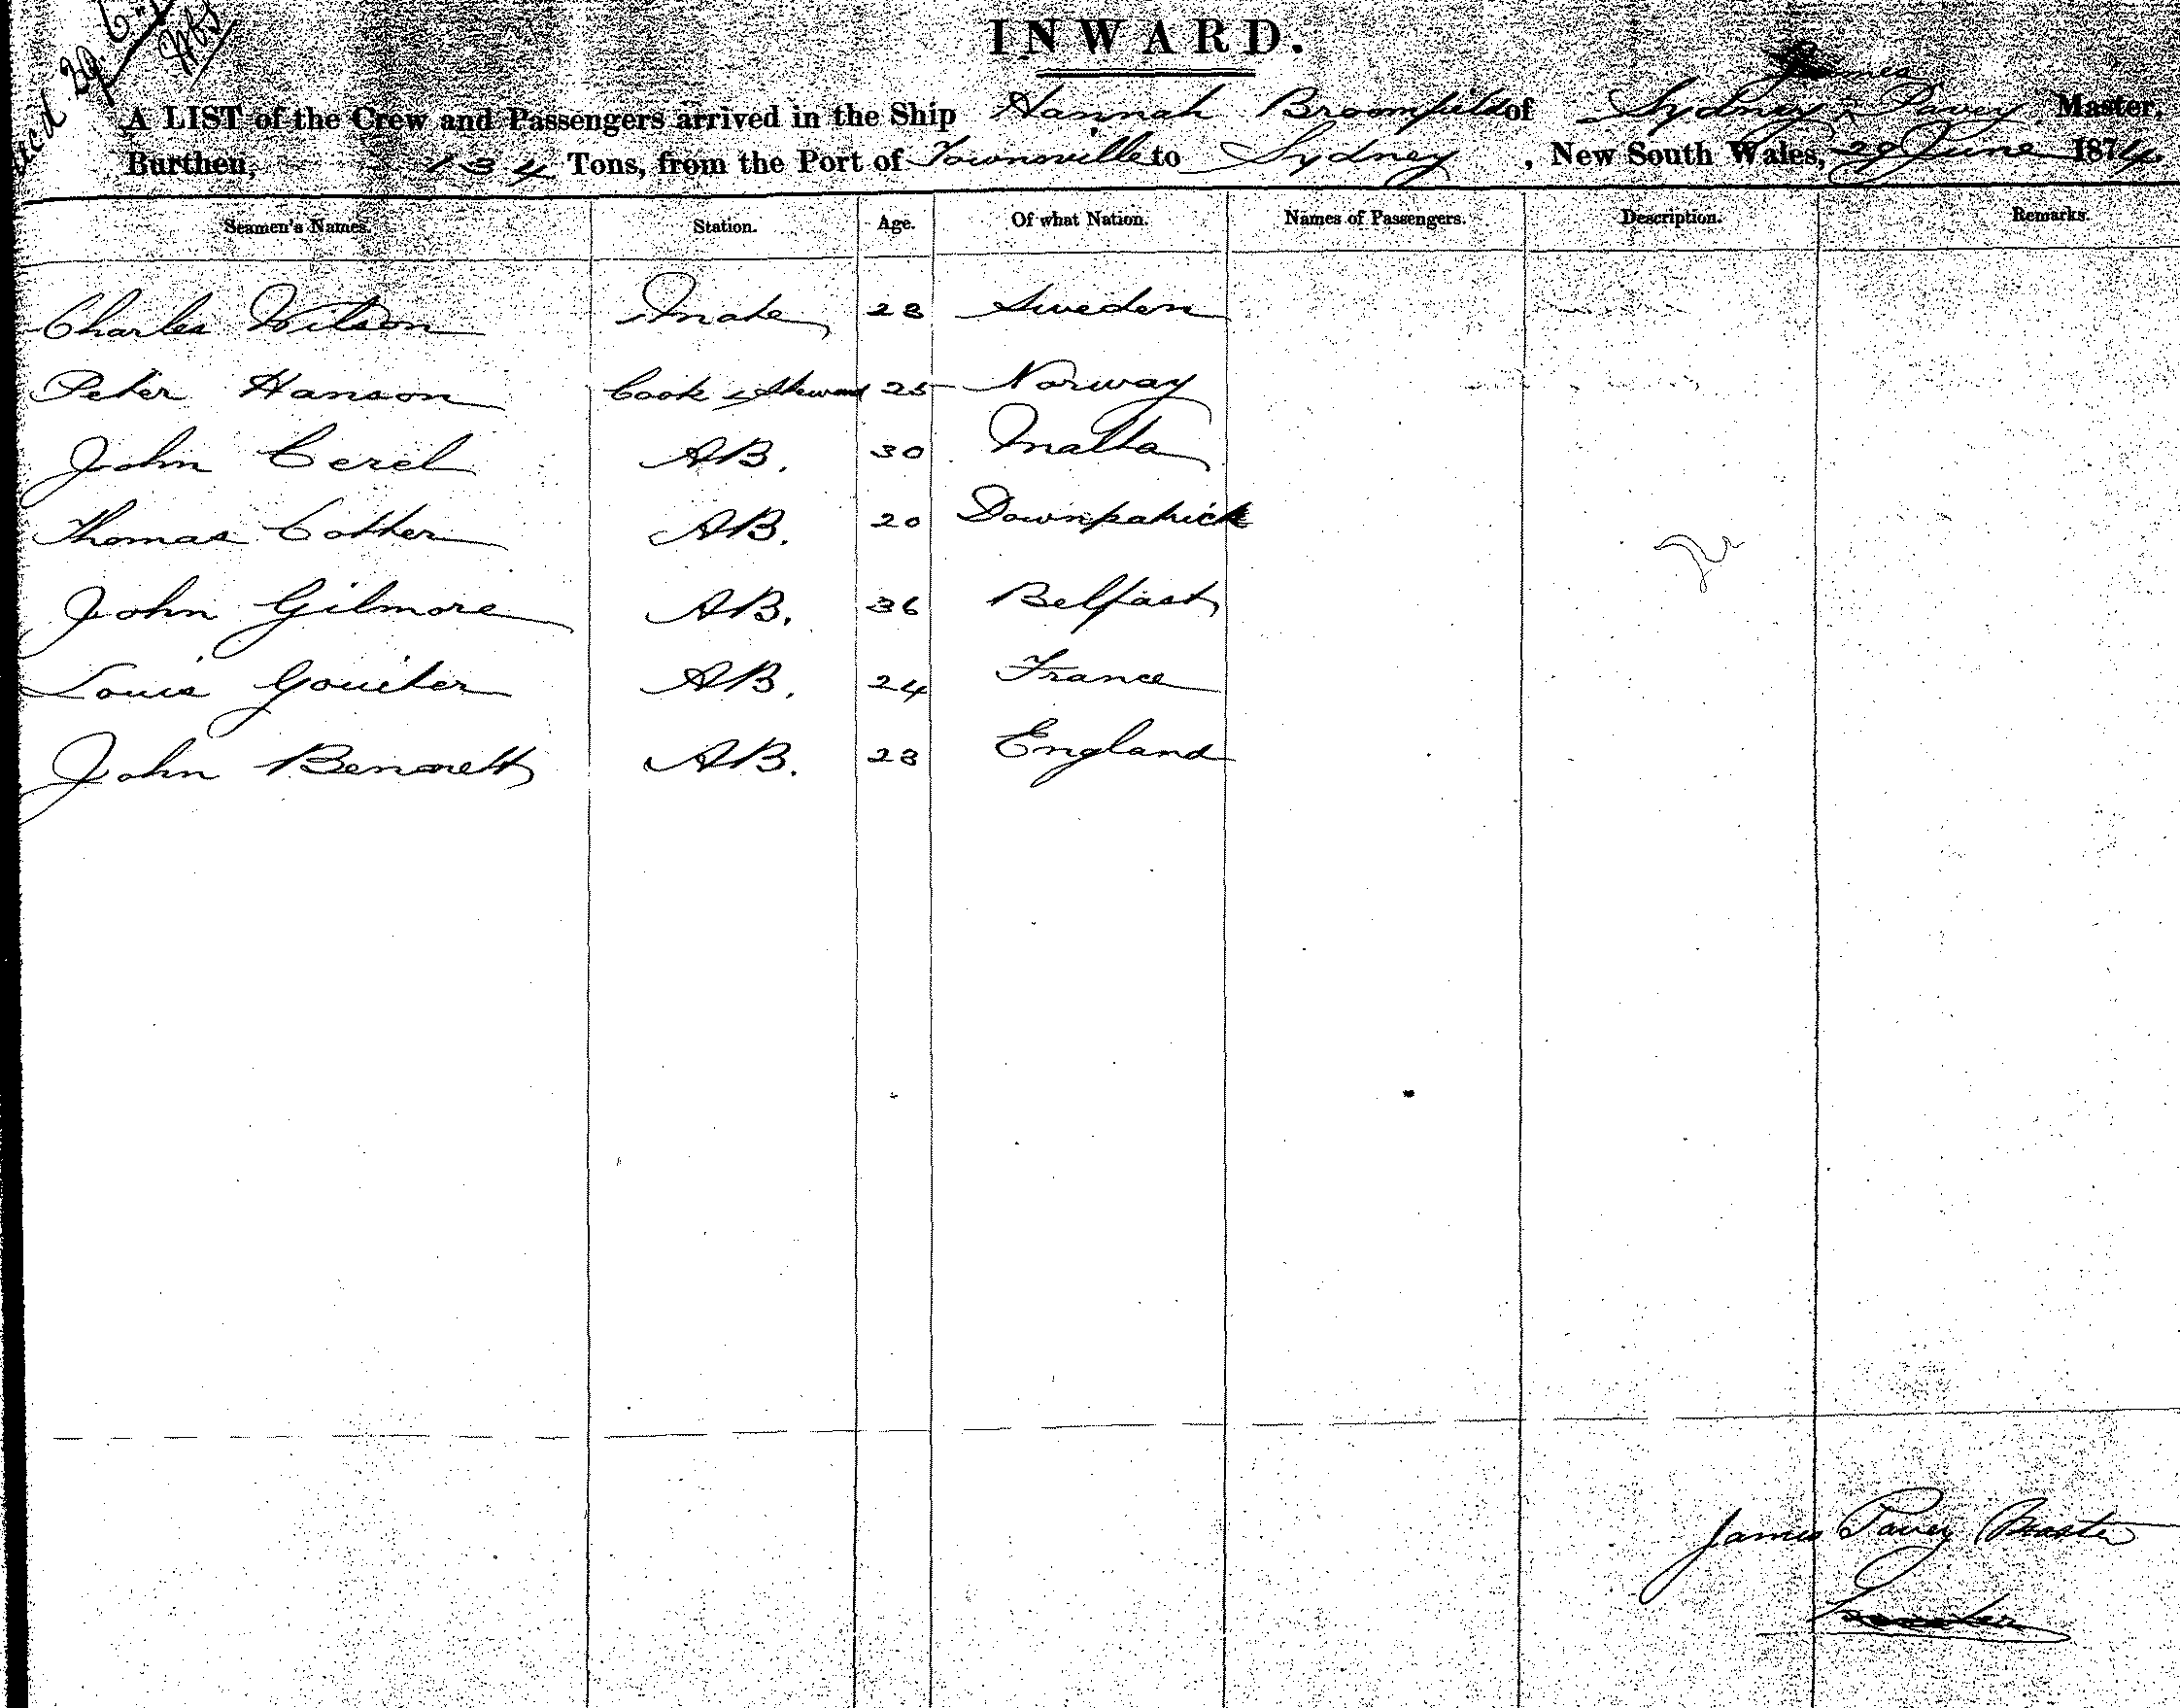 INWARD.
James
A LIST of the Crew and Passengers arrived in the Ship Hannah Broomfield of Sydney, Pavey Master,
Burthen, 134 Tons, from the Port of Townsville to Sydney, New South Wales, 29 June 1874
Seamen's Names. Station. Age. Of what Nation. Names of Passengers. Description. Remarks.
Charles Wilson Mate 28 Sweden
Peter Hanson Cook & Steward 25 Norway
John Cerel A B. 30 Malta
Thomas Cotter A B. 20 Downpatrick
John Gilmore A B. 36 Belfast
Louis Gouiter A B. 24 France
John Bennett A B. 28 England
James Pavey Master